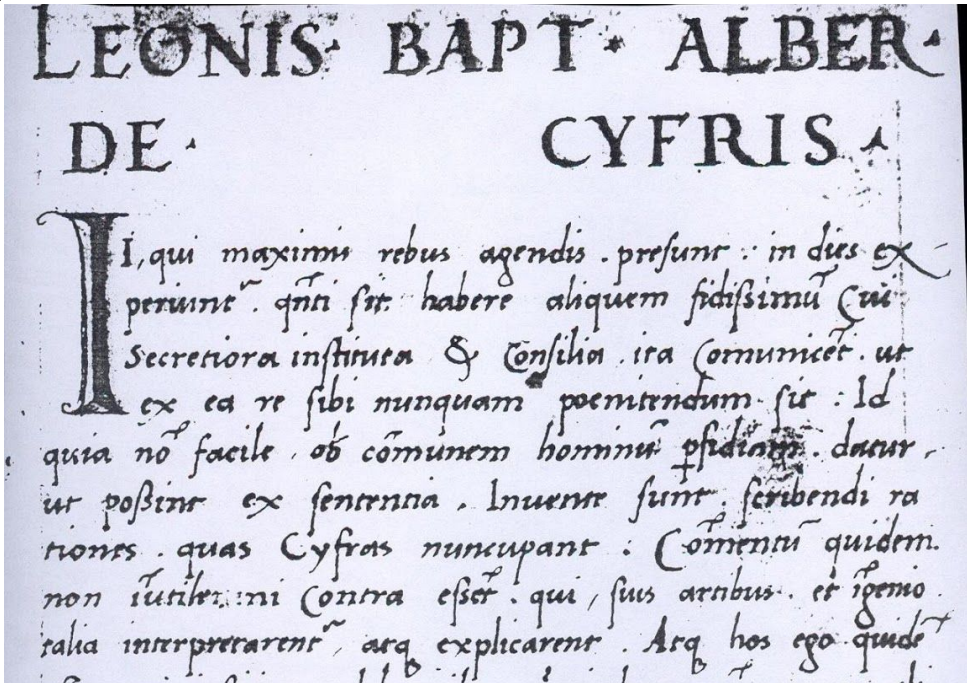 LEONIS· BAPT· ALBER·
DE· CYFRIS·
II, qui maximis rebus agendis . presunt : in dies ex
periunt᷑ . qñti sit habere aliquem fidissimũ Cui
Secretiora instituta & Consilia ita Comunicẽt . ut
ex ea re sibi nunquam poenitendum sit : Id
quia nõ facile ob cõmunem hominũ ꝑfidiam . datur ,
ut poßint ex sententia . Invente sunt scribendi ra
tiones . quas Cyfras nuncupant : Cõmentũ quidem
non iũtile: ni Contra eſſet . qui , suis artibus . et ĩgenio
talia interpretarent᷑ , atq explicarent . Atq hos ego quidẽ